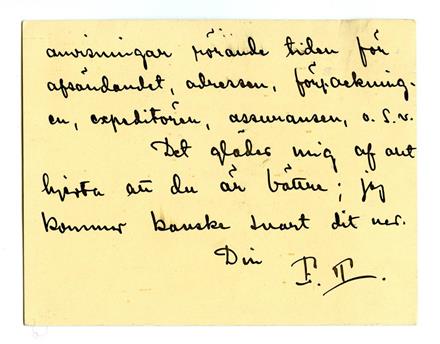 anvisningar rörande tiden för
afsändandet, adressen, förpackning-
en, expeditören, assuransen, o. s. v.
Det gläder mig af allt
hjerta att du är bättre; jag
kommer kanske snart dit ner.
Din
F. T.